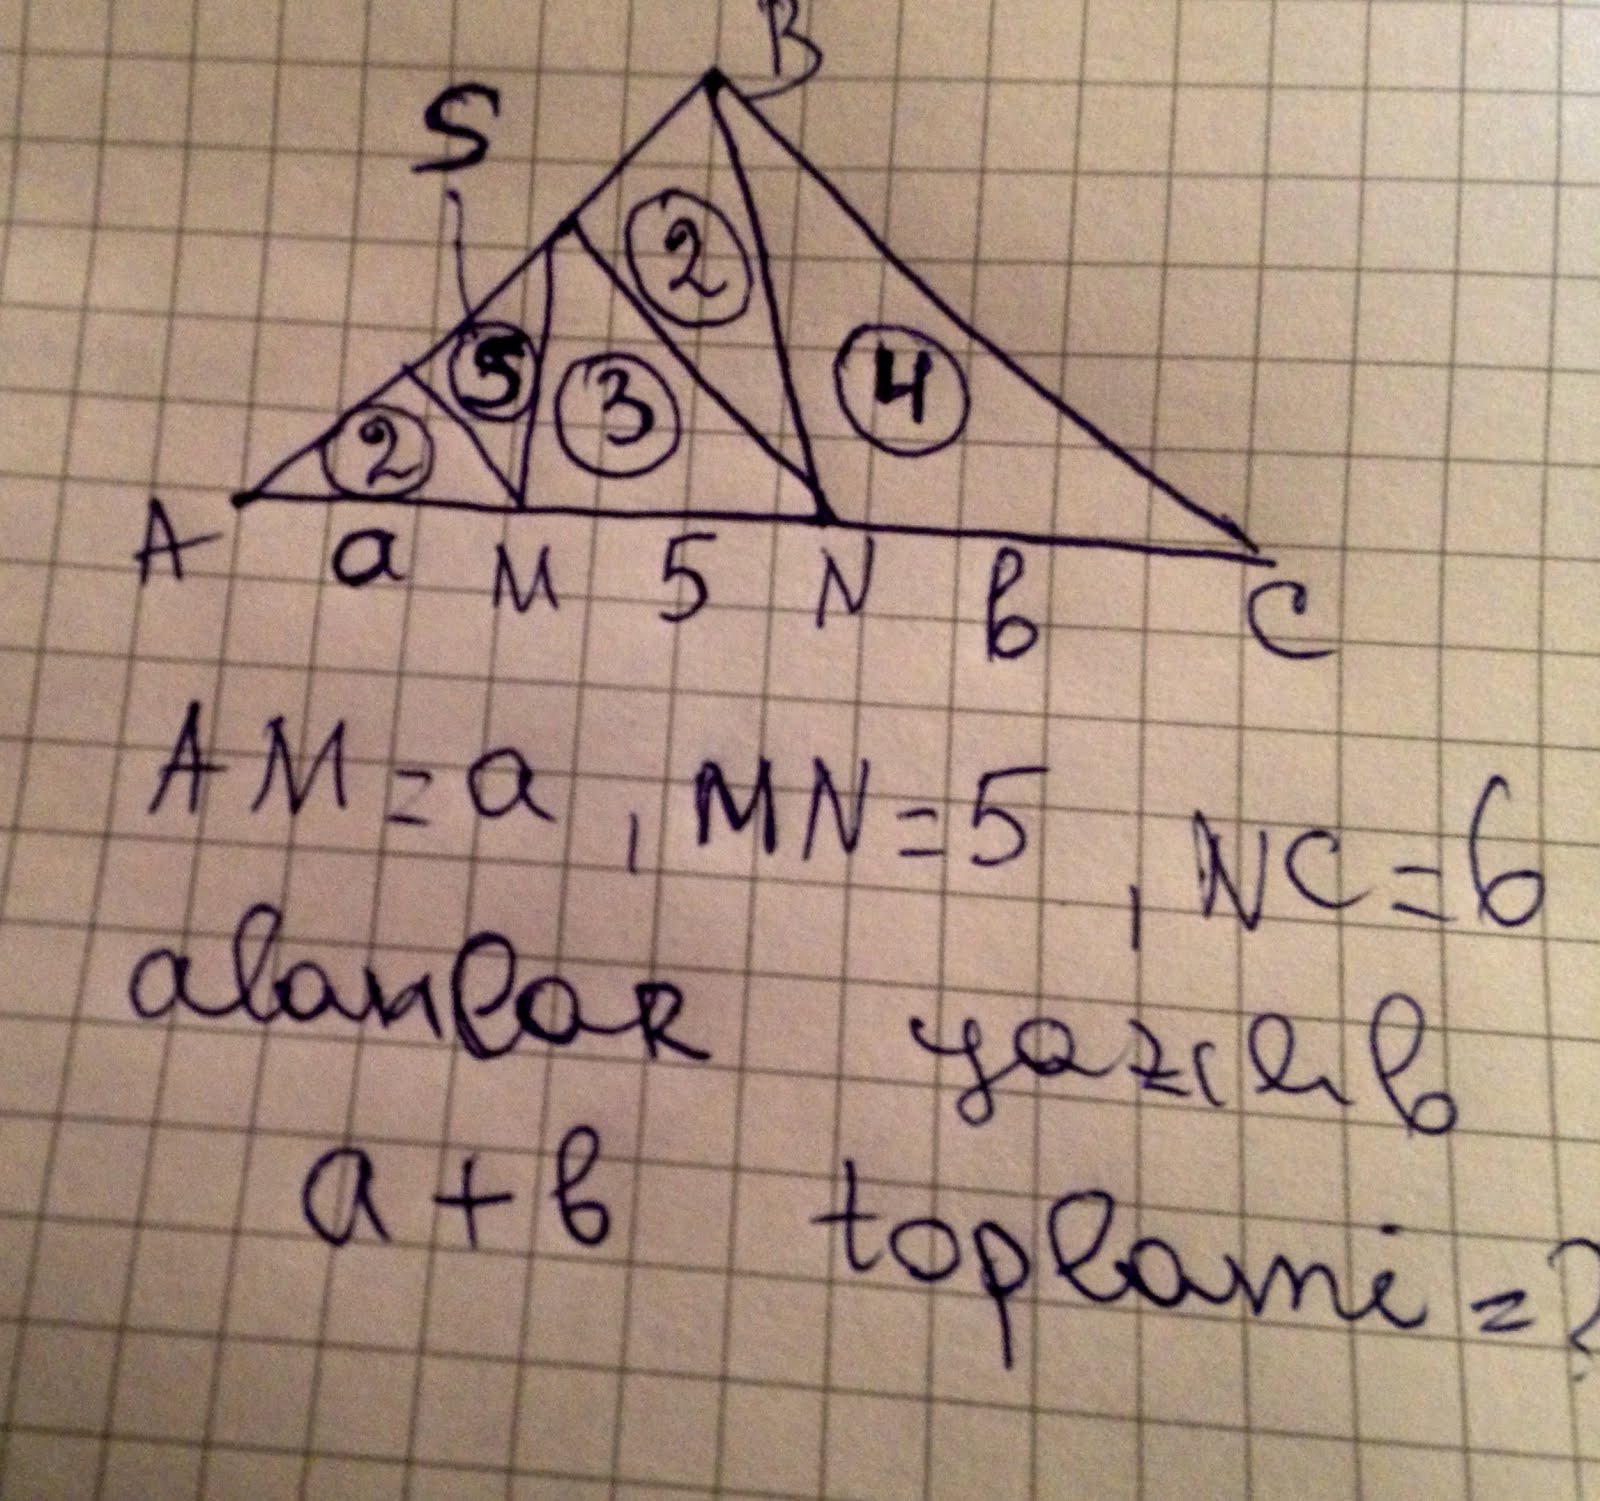 B
S
2
5
3
4
2
A a M 5 N b C
AM = a , MN = 5 , NC = b
alanlar yazılıb
a + b toplami = ?